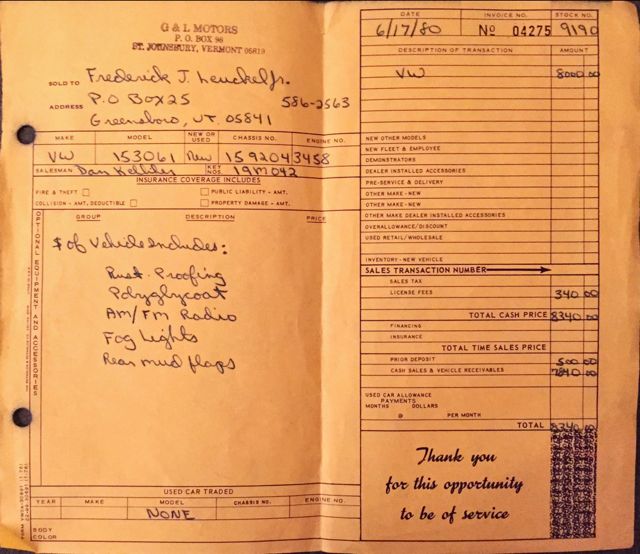 G & L MOTORS
P. O. BOX 98
ST. JOHNSBURY, VERMONT 05819
SOLD TO Frederick J. Leuckel Jr.
ADDRESS P.O Box 25 586-2563
Greensboro, VT. 05841
MAKE MODEL NEW OR USED CHASSIS NO. ENGINE NO.
VW 153061 New 1592043458
SALESMAN Dan KEY NOS. 19M042
INSURANCE COVERAGE INCLUDES
FIRE & THEFT PUBLIC LIABILITY - AMT.
COLLISION - AMT. DEDUCTIBLE PROPERTY DAMAGE - AMT.
OPTIONAL EQUIPMENT AND ACCESSORIES
GROUP DESCRIPTION PRICE
$ of Vehicle includes:
Rust Proofing
Polyglycoat
AM/FM Radio
Fog Lights
Rear mud flaps
USED CAR TRADED
YEAR MAKE MODEL CHASSIS NO. ENGINE NO.
NONE
BODY
COLOR
DATE INVOICE NO. STOCK NO.
6/17/80 No 04275 9190
DESCRIPTION OF TRANSACTION AMOUNT
VW 8000.00
NEW OTHER MODELS
NEW FLEET & EMPLOYEE
DEMONSTRATORS
DEALER INSTALLED ACCESSORIES
PRE-SERVICE & DELIVERY
OTHER MAKE - NEW
OTHER MAKE - NEW
OTHER MAKE DEALER INSTALLED ACCESSORIES
OVERALLOWANCE/DISCOUNT
USED RETAIL/WHOLESALE
INVENTORY - NEW VEHICLE
SALES TRANSACTION NUMBER
SALES TAX
LICENSE FEES 340 00
TOTAL CASH PRICE 8340 00
FINANCING
INSURANCE
TOTAL TIME SALES PRICE
PRIOR DEPOSIT 500.00
CASH SALES & VEHICLE RECEIVABLES 7840 00
USED CAR ALLOWANCE
PAYMENTS
MONTHS DOLLARS
@ PER MONTH
TOTAL 8340.00
Thank you
for this opportunity
to be of service